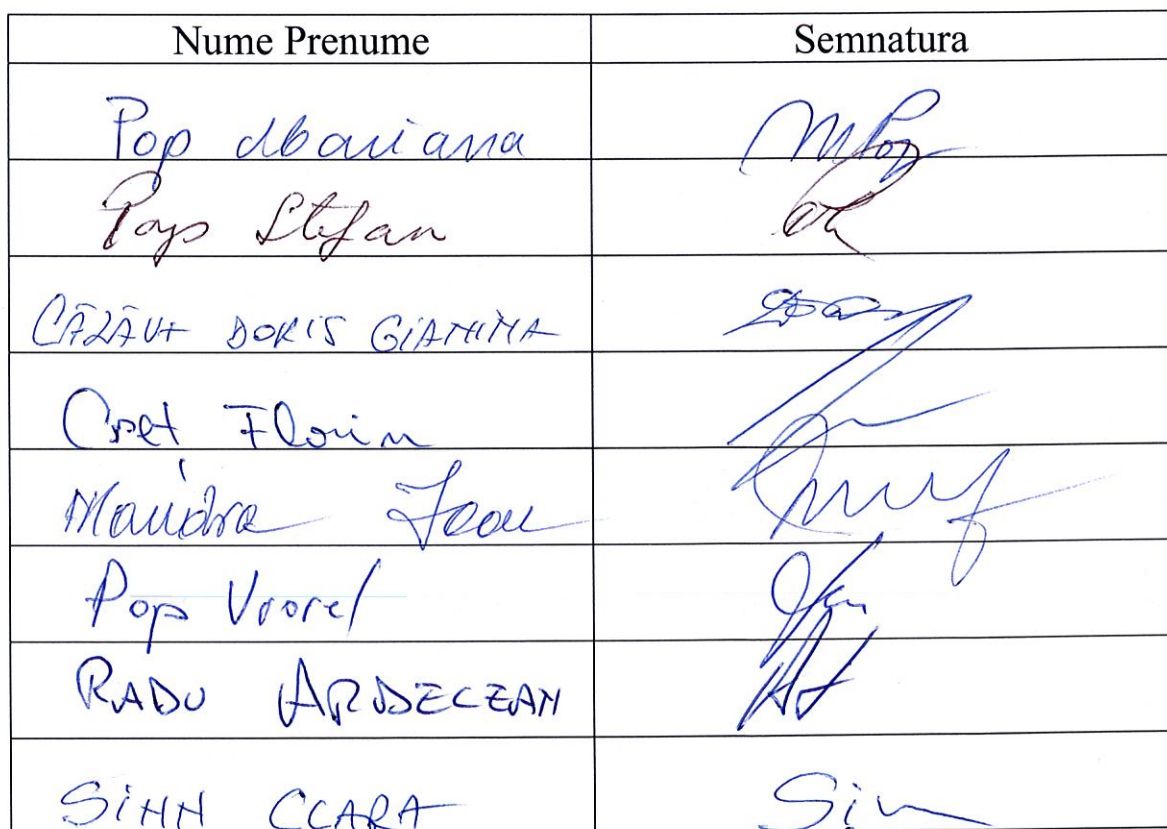 Nume Prenume Semnatura
Pop Mariana MPop
Pop Stefan
DORIS GIANINA
Cret Florin
Mandra Ioan
Pop Viorel
RADU ARDELEAN
SINN CLARA Sin